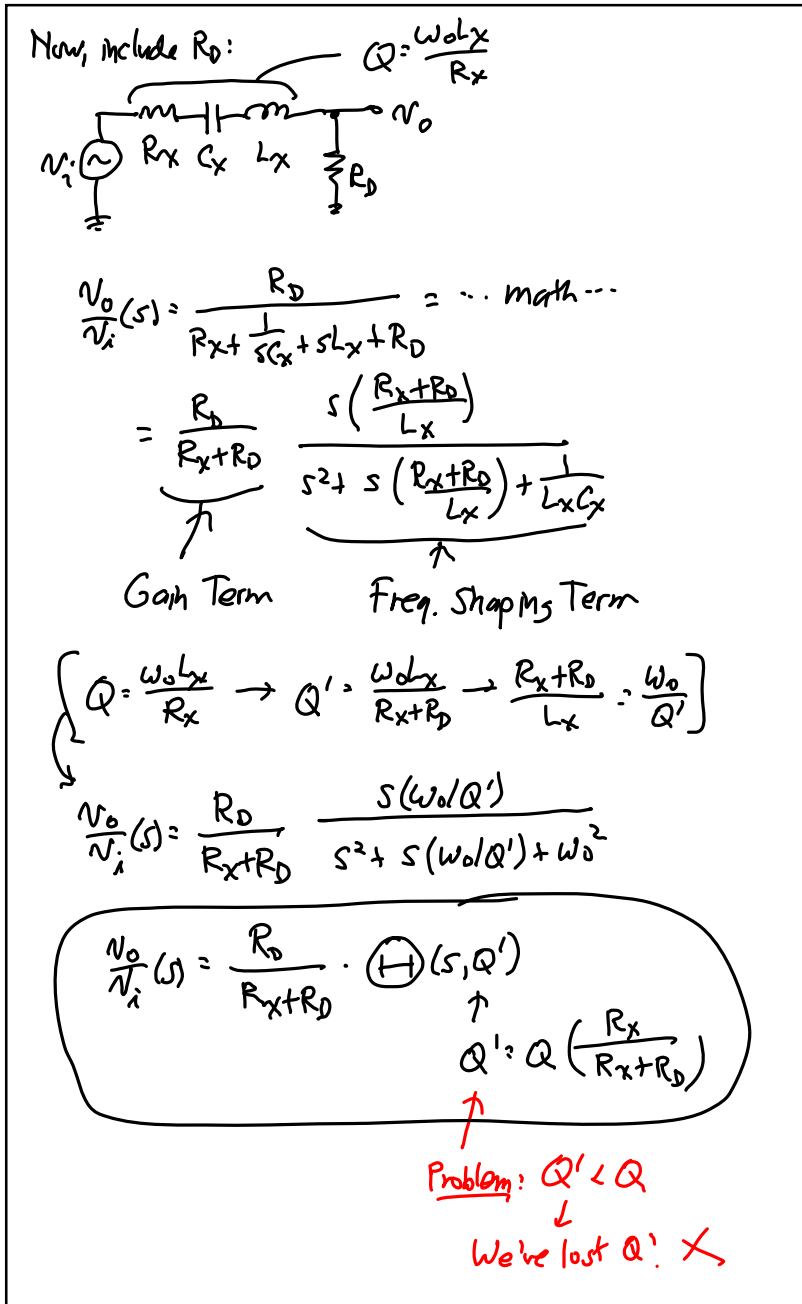 Now, include R_D:
Q = ω₀Lx / Rx
Rx Cx Lx
v_o
v_i
R_D
v_o/v_i (s) = R_D / (Rx + 1/(sCx) + sLx + R_D) = ... math ...
= R_D/(Rx+R_D) · s((Rx+R_D)/Lx) / (s² + s((Rx+R_D)/Lx) + 1/(LxCx))
Gain Term Freq. Shaping Term
[Q = ω₀Lx/Rx → Q' = ω₀Lx/(Rx+R_D) → (Rx+R_D)/Lx = ω₀/Q']
v_o/v_i (s) = R_D/(Rx+R_D) · s(ω₀/Q') / (s² + s(ω₀/Q') + ω₀²)
v_o/v_i (s) = R_D/(Rx+R_D) · Ⓗ(s, Q')
↑
Q' = Q (Rx/(Rx+R_D))
↑
Problem: Q' < Q
↓
We've lost Q! X